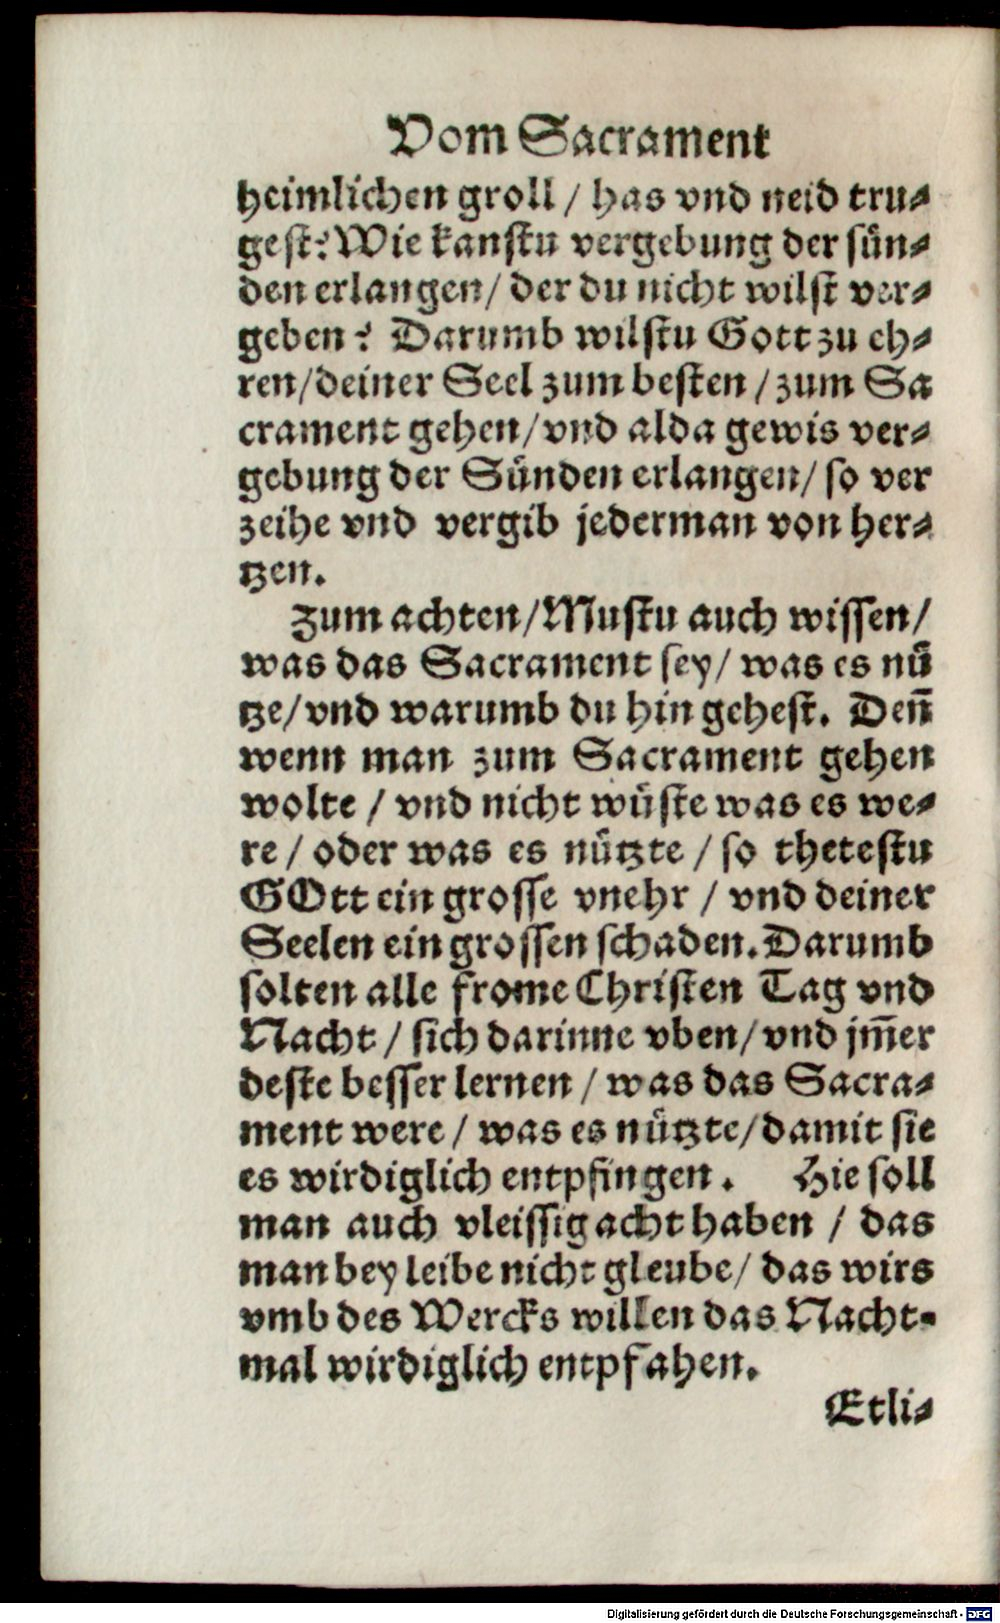 Vom Sacrament
heimlichen groll / has vnd neid tru⸗
gest? Wie kanstu vergebung der sün⸗
den erlangen / der du nicht wilst ver⸗
geben? Darumb wilstu Gott zu eh⸗
ren / deiner Seel zum besten / zum Sa
crament gehen / vnd alda gewis ver⸗
gebung der Sünden erlangen / so ver
zeihe vnd vergib jederman von her⸗
tzen.
Zum achten / Mustu auch wissen /
was das Sacrament sey / was es nü
tze / vnd warumb du hin gehest. Den̄
wenn man zum Sacrament gehen
wolte / vnd nicht wüste was es we⸗
re / oder was es nützte / so thetestu
GOtt ein grosse vnehr / vnd deiner
Seelen ein grossen schaden. Darumb
solten alle frome Christen Tag vnd
Nacht / sich darinne vben / vnd jm̄er
deste besser lernen / was das Sacra⸗
ment were / was es nützte / damit sie
es wirdiglich entpfingen. Hie soll
man auch vleissig acht haben / das
man bey leibe nicht gleube / das wirs
vmb des Wercks willen das Nacht⸗
mal wirdiglich entpfahen.
Etli⸗
Digitalisierung gefördert durch die Deutsche Forschungsgemeinschaft - DFG